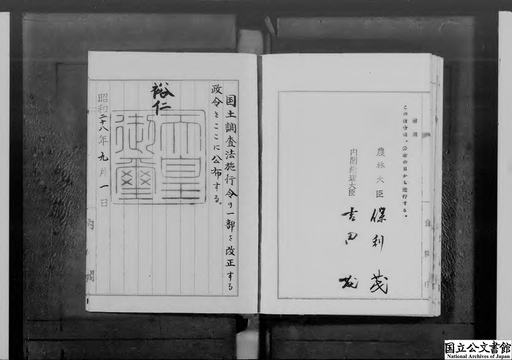 附則
この政令は、公布の日から施行する。
農林大臣 保利茂
内閣総理大臣 吉田茂
国土調査法施行令の一部を改正する
政令をここに公布する。
裕仁
天皇御璽
昭和二十八年九月一日
内閣
国立公文書館
National Archives of Japan